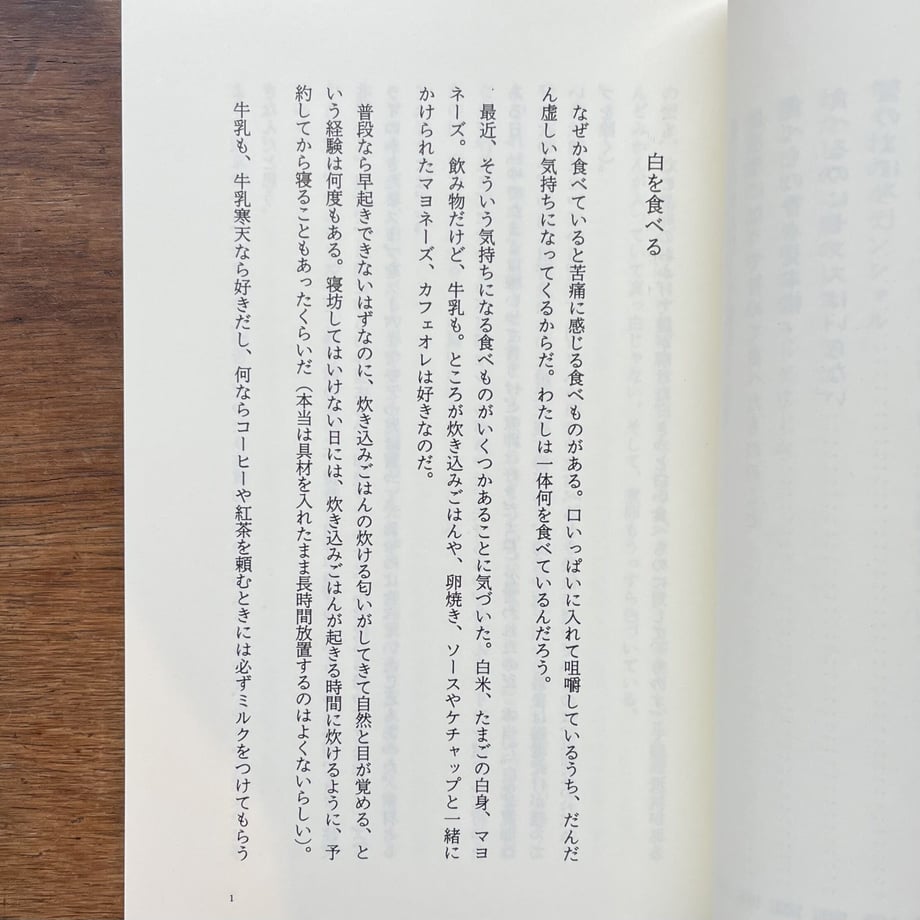 白を食べる
なぜか食べていると苦痛に感じる食べものがある。口いっぱいに入れて咀嚼しているうち、だんだ
ん虚しい気持ちになってくるからだ。わたしは一体何を食べているんだろう。
最近、そういう気持ちになる食べものがいくつかあることに気づいた。白米、たまごの白身、マヨ
ネーズ。飲み物だけど、牛乳も。ところが炊き込みごはんや、卵焼き、ソースやケチャップと一緒に
かけられたマヨネーズ、カフェオレは好きなのだ。
普段なら早起きできないはずなのに、炊き込みごはんの炊ける匂いがしてきて自然と目が覚める、と
いう経験は何度もある。寝坊してはいけない日には、炊き込みごはんが起きる時間に炊けるように、予
約してから寝ることもあったくらいだ（本当は具材を入れたまま長時間放置するのはよくないらしい）。
牛乳も、牛乳寒天なら好きだし、何ならコーヒーや紅茶を頼むときには必ずミルクをつけてもらう
1